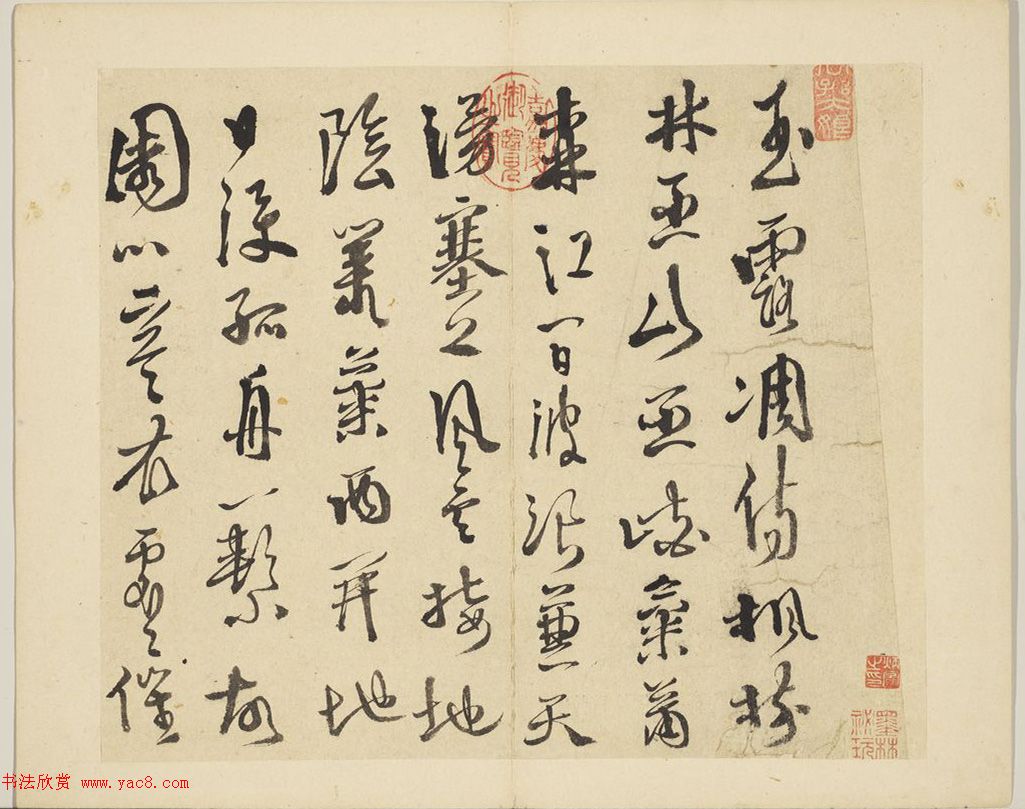 玉露凋傷楓樹
林巫山巫峽氣蕭
森江間波浪兼天
湧塞上風雲接地
陰叢菊兩開地
日淚孤舟一繫故
園心寒衣處〻催
嘉慶御覽之寶
墨林祕玩
书法欣赏 www.yac8.com